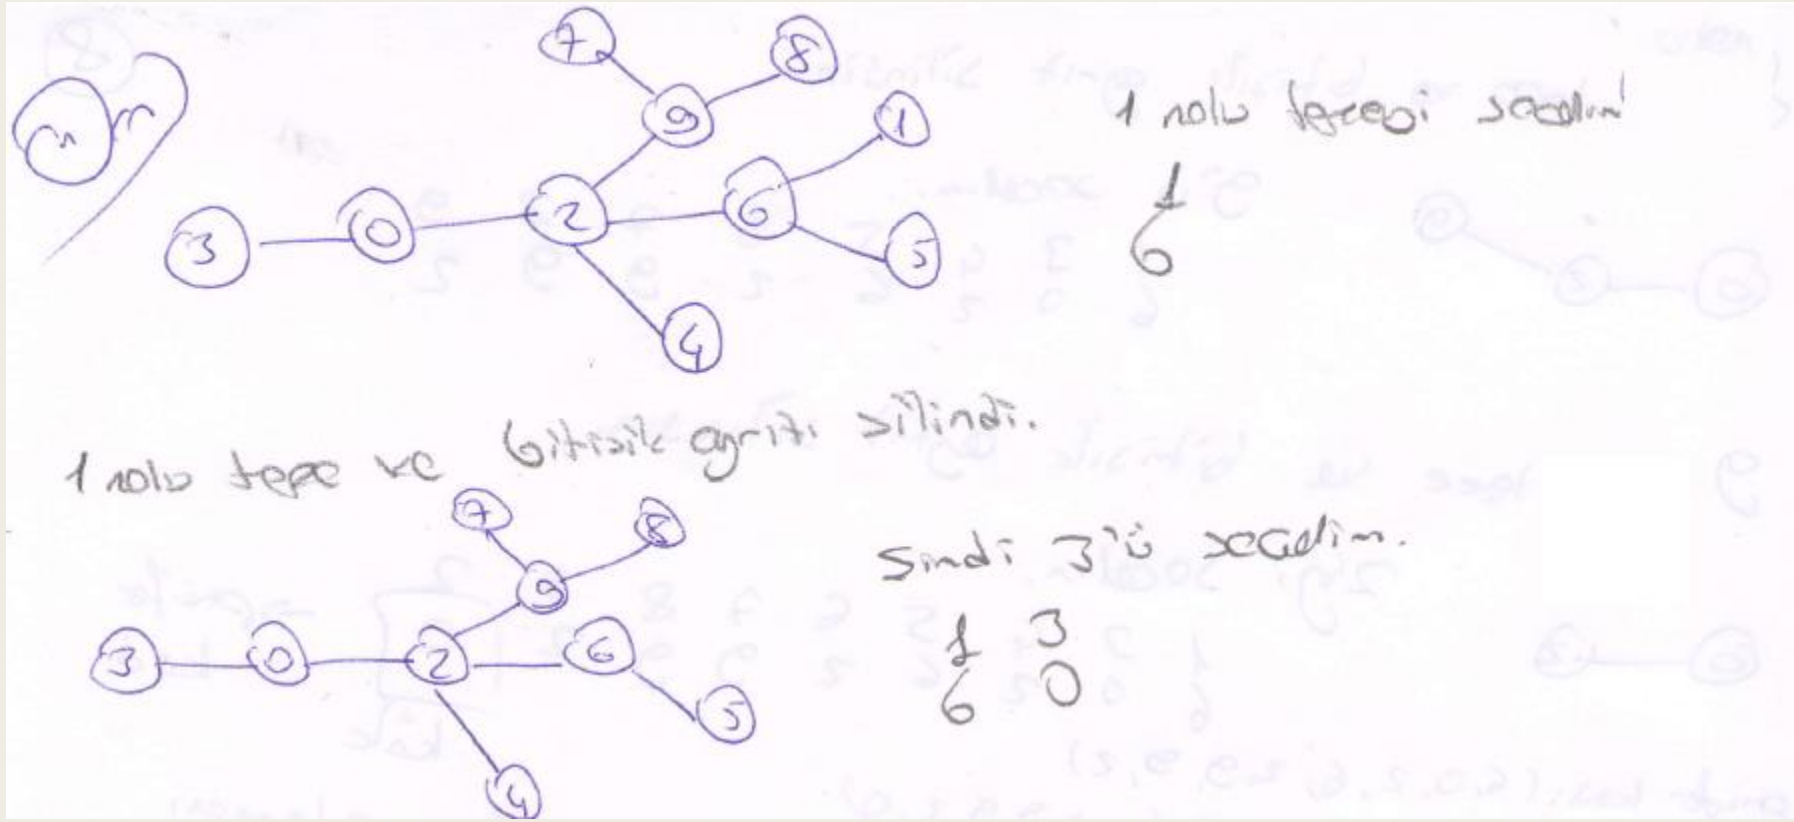 7 8
9 1
3 0 2 6 5
4
1 nolu tepeyi seçelim
1
6
1 nolu tepe ve bitişik ayrıtı silindi.
7 8
9
3 0 2 6 5
4
Şimdi 3'ü seçelim.
1 3
6 0